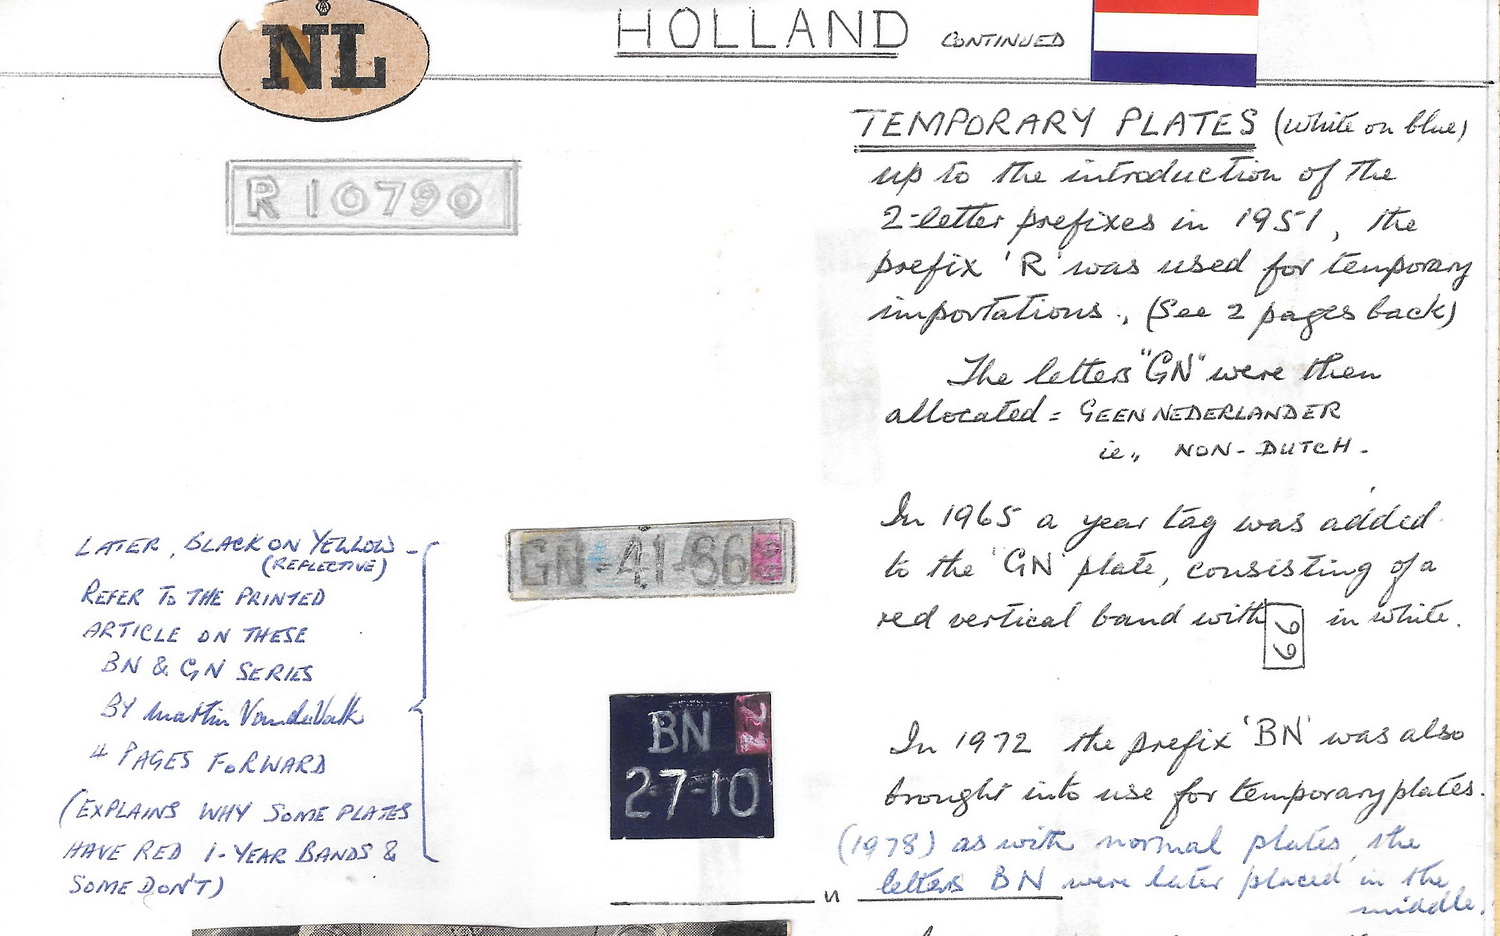 NL
HOLLAND CONTINUED
R 10790
TEMPORARY PLATES (white on blue)
up to the introduction of the
2-letter prefixes in 1951, the
prefix 'R' was used for temporary
importations., (See 2 pages back)
The letters "GN" were then
allocated = GEEN NEDERLANDER
ie., NON-DUTCH.
In 1965 a year tag was added
to the 'GN' plate, consisting of a
red vertical band with 99 in white.
GN-41-66
LATER, BLACK ON YELLOW -
(REFLECTIVE)
REFER TO THE PRINTED
ARTICLE ON THESE
BN & GN SERIES
BY Martin VandeValk
4 PAGES FORWARD
(EXPLAINS WHY SOME PLATES
HAVE RED 1-YEAR BANDS &
SOME DON'T)
BN 77
27-10
In 1972 the prefix 'BN' was also
brought into use for temporary plates.
(1978) as with normal plates, the
letters BN were later placed in the
middle.
"